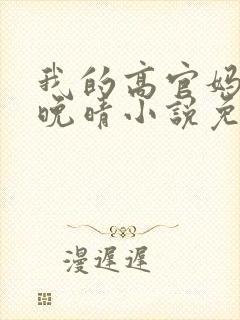 我的高官妈
晚晴小说免
漫遲遲